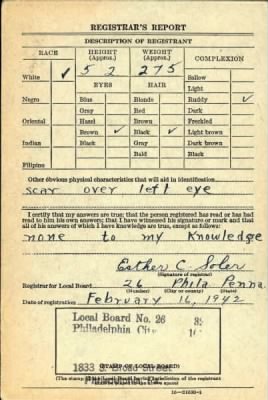 REGISTRAR'S REPORT
DESCRIPTION OF REGISTRANT
RACE HEIGHT (Approx.) WEIGHT (Approx.) COMPLEXION
White ✓ 5 2 275 Sallow
EYES HAIR Light
Negro Blue Blonde Ruddy ✓
Gray Red Dark
Oriental Hazel Brown Freckled
Brown ✓ Black ✓ Light brown
Indian Black Gray Dark brown
Bald Black
Filipino
Other obvious physical characteristics that will aid in identification
scar over left eye
I certify that my answers are true; that the person registered has read or has had
read to him his own answers; that I have witnessed his signature or mark and that
all of his answers of which I have knowledge are true, except as follows:
none to my knowledge
Esther C. Soler
(Signature of registrar)
Registrar for Local Board 26 Phila Penna.
(Number) (City or county) (State)
Date of registration February 16, 1942
Local Board No. 26
Philadelphia City
1833 S. Broad Street
(STAMP OF LOCAL BOARD)
(The stamp of the Local Board having jurisdiction of the registrant
shall be placed in the above space)
16-21630-1